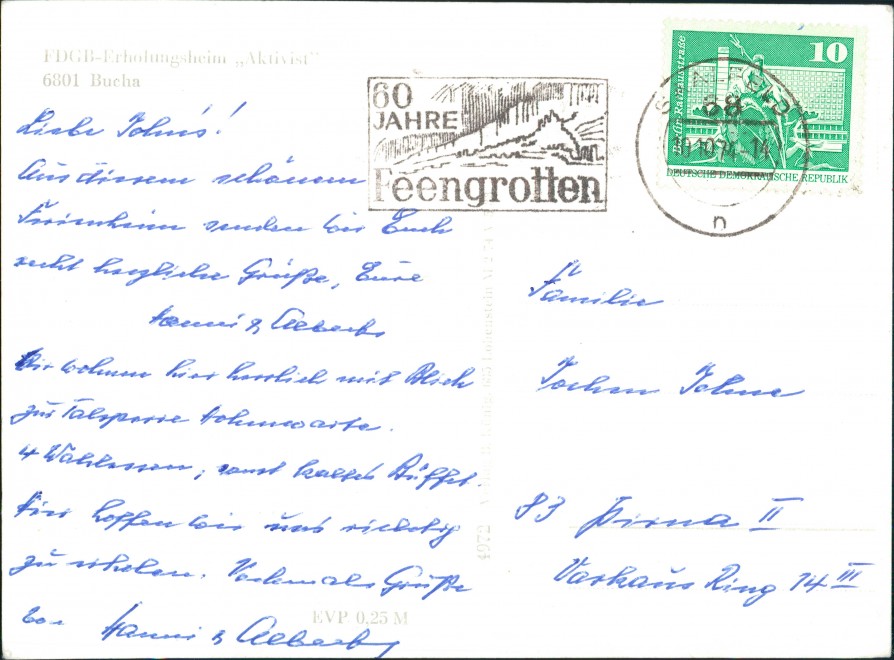 FDGB-Erholungsheim „Aktivist"
6801 Bucha
60
JAHRE
Feengrotten
Berlin, Rathausstraße
10
DEUTSCHE DEMOKRATISCHE REPUBLIK
SAALFELD
68
10.74 - 14
n
Liebe John's!
Aus diesem schönen
Ferienheim senden wir Euch
recht herzliche Grüße, Eure
Hanni &
Wir wohnen hier herrlich mit Blick
zur Talsperre Hohenwarte.
4 Wahlessen, sonst kaltes Büffet.
Hier hoffen wir uns richtig
zu erholen. Nochmals Grüße
von Hanni &
EVP 0,25 M
4972
Familie
Jochen Johne
83 Pirna II
Varkaus Ring 74 III